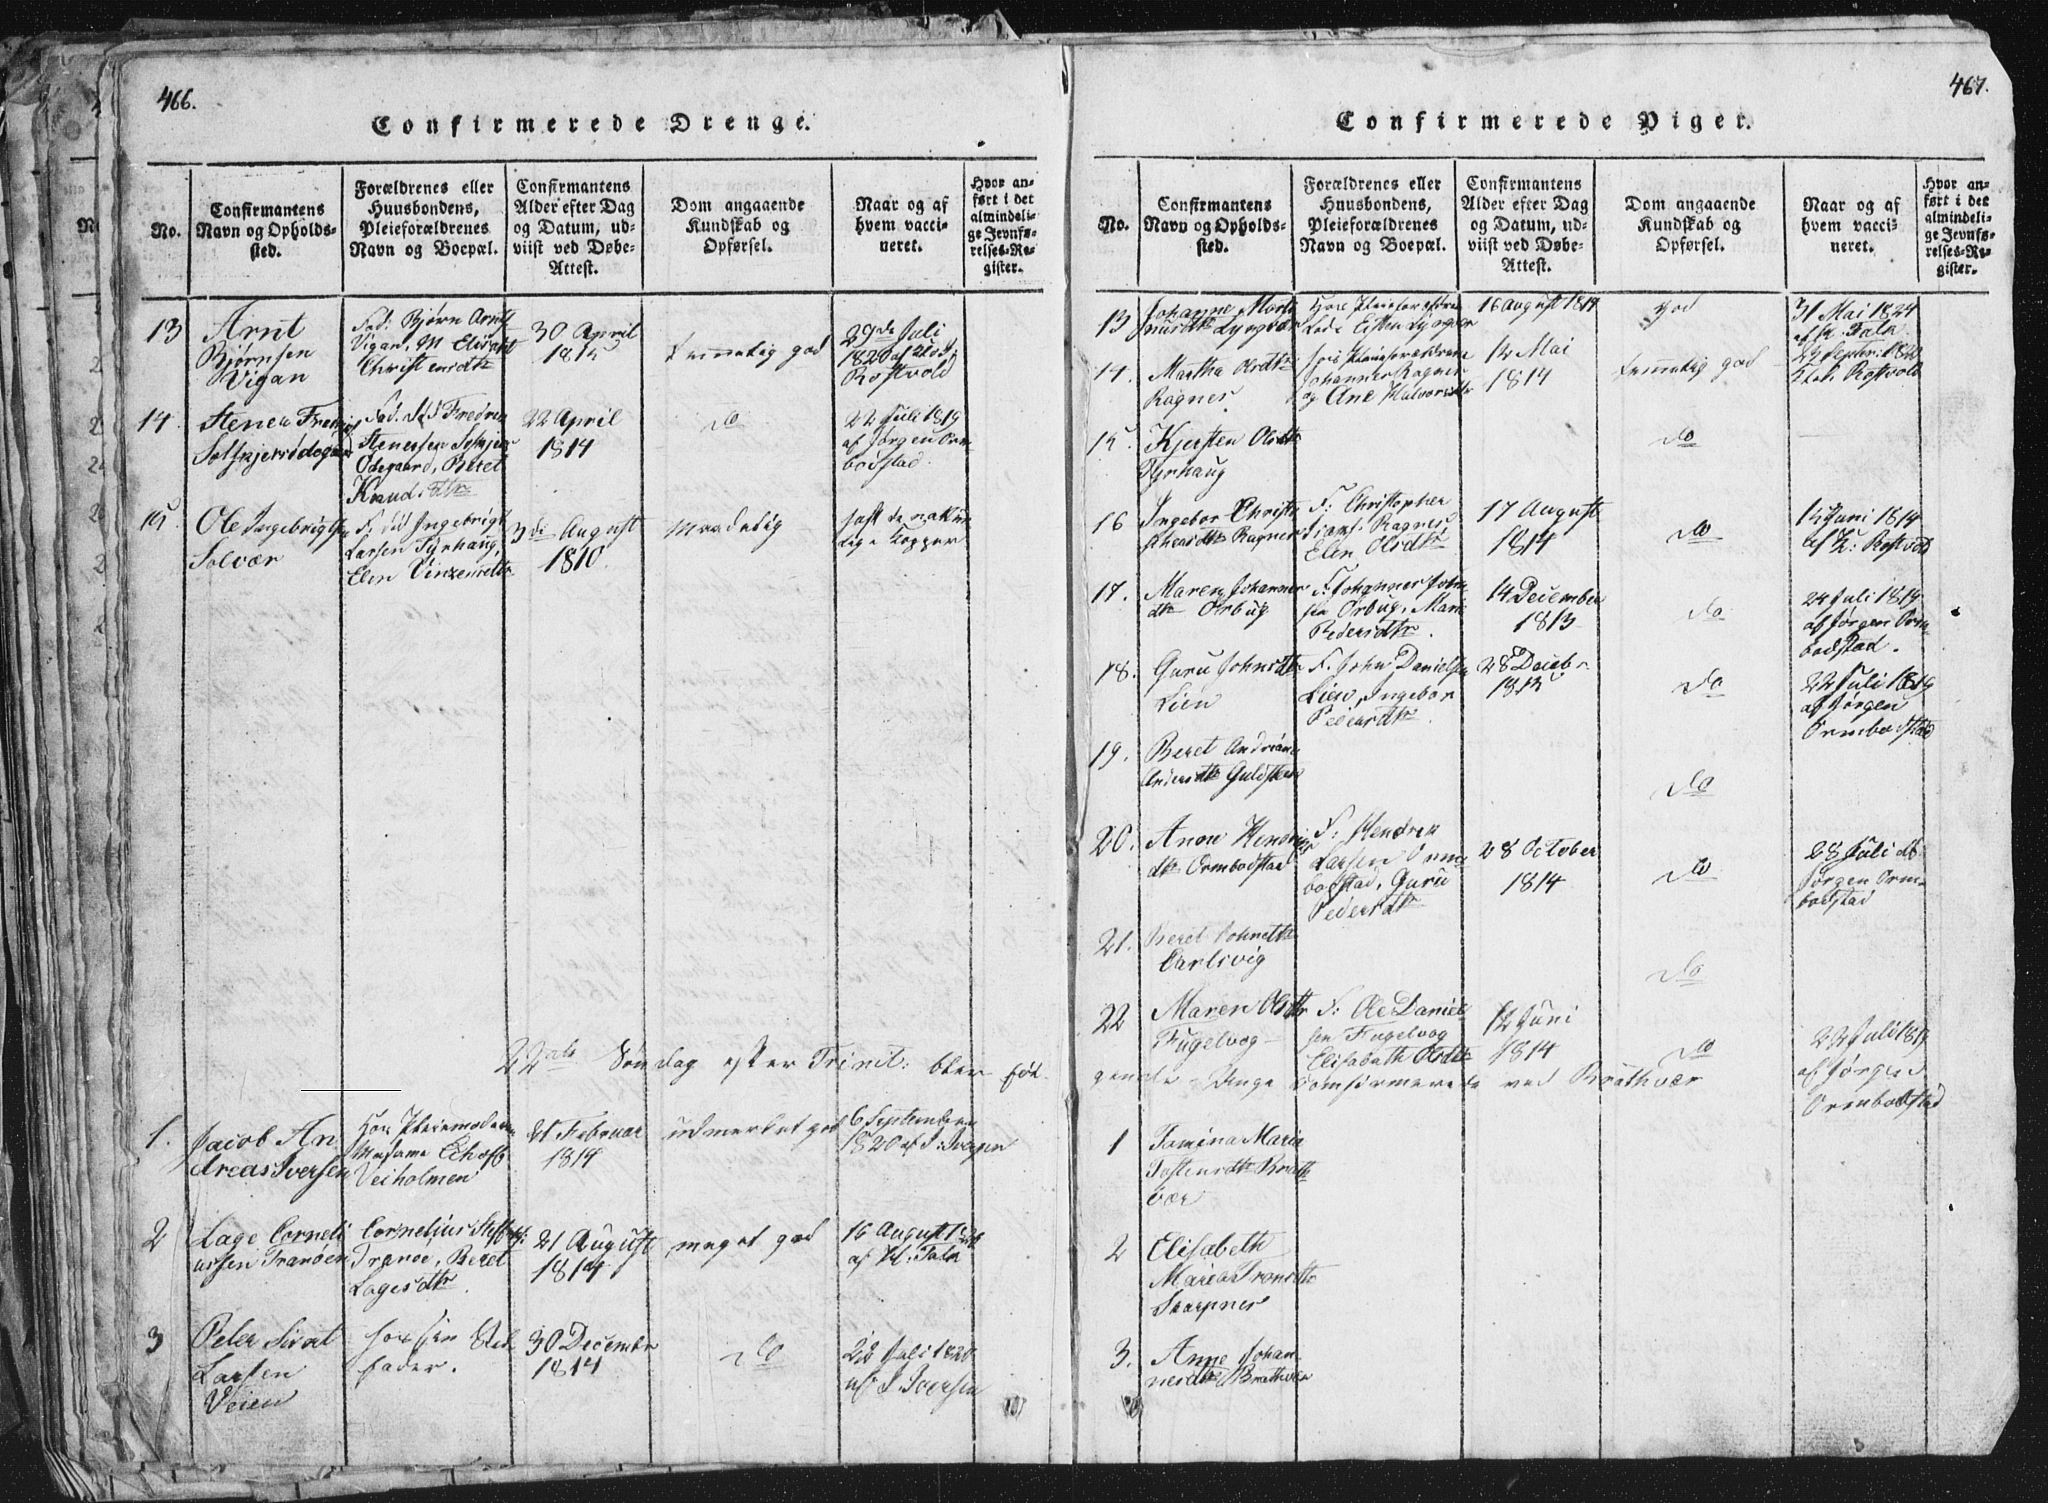 466.
Confirmerede Drenge.
No.
Confirmantens
Navn og Opholds-
sted.
Forældrenes eller
Huusbondens,
Pleieforældrenes
Navn og Boepæl.
Confirmantens
Alder efter Dag
og Datum, ud-
viist ved Døbe-
Attest.
Dom angaaende
Kundskab og
Opførsel.
Naar og af
hvem vacci-
neret.
Hvor an-
ført i det
almindeli-
ge Jevnfø-
relses-Re-
gister.
13
Arnt
Bjørnsen
Vigan
Fad: Bjørn Arnt
Vigan, M
Christensdtr
30 April
temmelig god
29de Juli
1820 af
Rostvold
14.
Fad.
Stenersen
Odegaard, Beret
Knudsdtr
22 April
1814
do
22 Juli 1819
af Jørgen Orm-
bodstad.
15.
Ole Ingebrigtsen
Solvær
F. Ingebrigt
Larsen Tyrhaug,
Elen Vinzensdtr
3de August
1810.
Maadelig
haft de natur
lige Kopper
22de Søndag efter Trinit: blev føl
1.
Jacob An
dreas Iversen
Hos Pleiemoderen
Madame
Veiholmen
21 Februar
1814
udmerket god
6 September
1820 af I: Iversen
2
Lage Corneli
ussen Tranøen
Cornelius
Tranøe, Beret
Lagesdtr.
21 August
1814
meget god
16 August
af H: Falk
3
Peter Sivat
Larsen
Veien
hos sin Sted
fader.
30 Decembr
1814
do
22 Juli 1820
af I Iversen
467.
Confirmerede Piger.
No.
Confirmantens
Navn og Opholds-
sted.
Forældrenes eller
Huusbondens,
Pleieforældrenes
Navn og Boepæl.
Confirmantens
Alder efter Dag
og Datum, ud-
viist ved Døbe-
Attest.
Dom angaaende
Kundskab og
Opførsel.
Naar og af
hvem vacci-
neret.
Hvor an-
ført i det
almindeli-
ge Jevnfø-
relses-Re-
gister.
13
Johanne Marti
nusdtr Lyngvær
Hos Pleieforældre
16 August 1814
God
31 Mai 1824
af H. Falk
14.
Martha Olsdtr
Ragnes
hos Pleieforældrene
Johannes Ragnes
og Ane Halvorsdtr
12 Mai
1814
temmelig god
29 Septbr: 1820
Rostvold
15.
Kjersten Olsdtr
Tyrhaug
do
16
Ingebor Christo
phersdtr Ragnes
F: Christopher
Ragnes
Elen Olsdtr
17 August
1814
do
12 Juni 1814
af Z: Rostvold
17.
Maren Johannes
dtr Orbug
F. Johannes John
sen Orbug, Mari
Pedersdtr.
14 December
1813
do
24 Juli 1819
af Jørgen Orm-
bodstad.
18.
Guru Johnsdtr
Lien
F. John Danielsen
Lien, Ingebor
Pedersdtr.
28 Decbr
1813
do
22 Juli 1819
af Jørgen
Ormbodstad
19.
Beret Andrian
Andersdtr Guldsten
do
20.
Anne Hendrics
dtr Ormbodstad
F: Hendrik
Larsen Orm
bodstad, Guru
Pedersdtr
28 October
1814
do
28 Juli af
Jørgen Orm-
bodstad
21.
Beret Johnsdtr
Carlsvig
do
22
Maren Olsdtr
Fugelvog
F: Ole Daniel
sen Fugelvog
Elisabeth Olsdtr
12 Juni
1814
do
22 Juli 1819
af Jørgen
Ormbodstad
gende Unge Comfirmerede ved Brathvær
1
Tamina Maria
Tostensdtr Brath
vær
2
Elisabeth
Maria Tronsdtr
Skarpnes
3.
Anne Johan-
nesdtr Brathvær